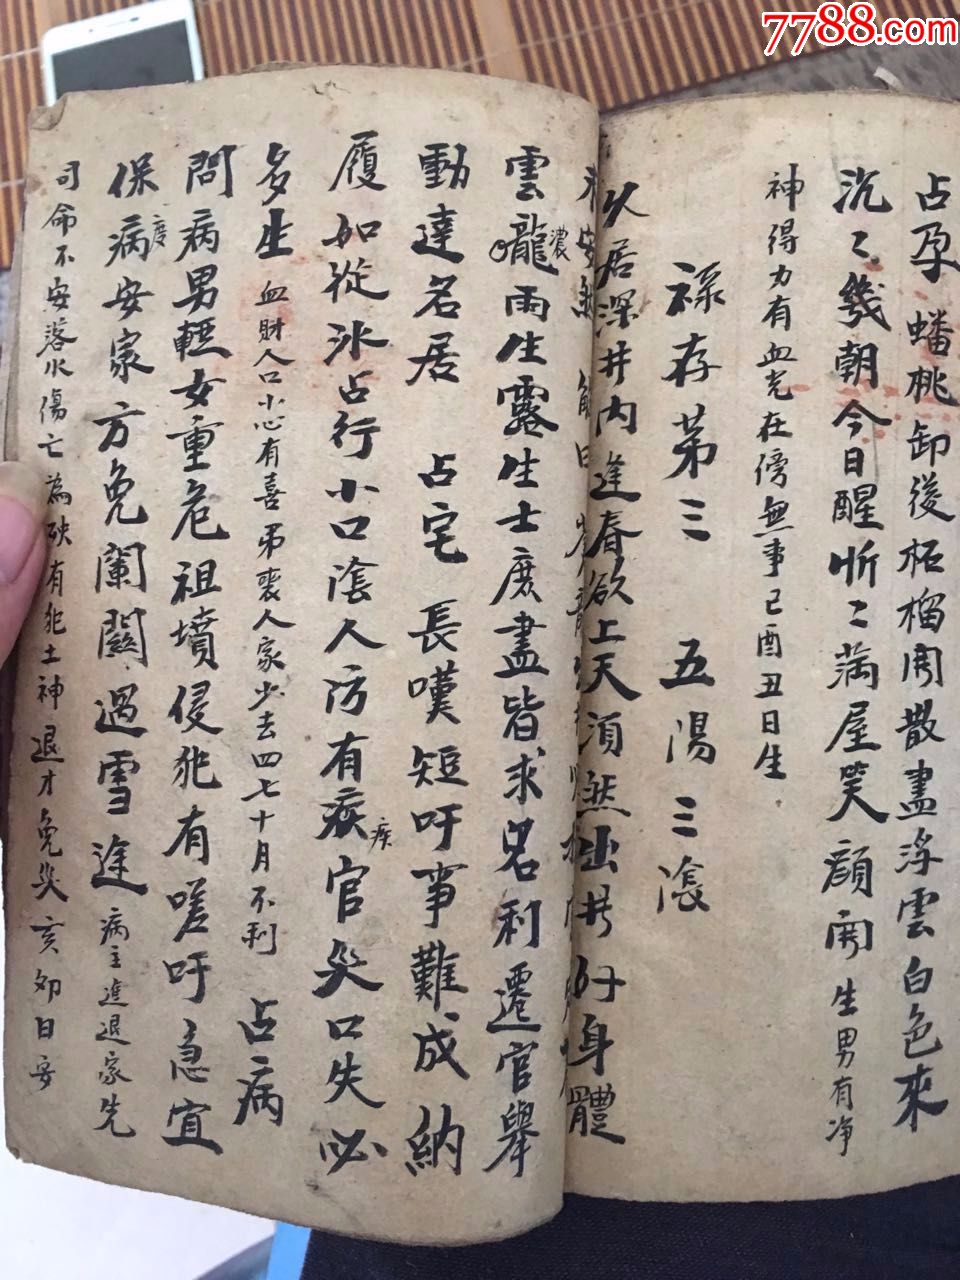 7788.com
占孕 蟠桃卸後柘榴開散盡浮雲白色來
沉々幾朝今日醒忻々滿屋笑顔開 生男有净
神得力有血光在傍無事已酉丑日生
祿存第三 五陽三陰
久居深井内逢春欲上天須然出井好身體
雲龍濃雨生露生士庶盡皆求名利遷官舉
動達名居 占宅 長嘆短吁事難成納
履如從冰占行小口陰人防有疾疾官災口失必
多生 血財人口小心有喜弟喪人家少去四七十月不利 占病
問病男輕女重危祖墳侵犯有嗟吁急宜
保病度安家方免闌闗過雪途 病主進退家先
司命不安落水傷亡為殃有犯土神退才免災亥卯日安